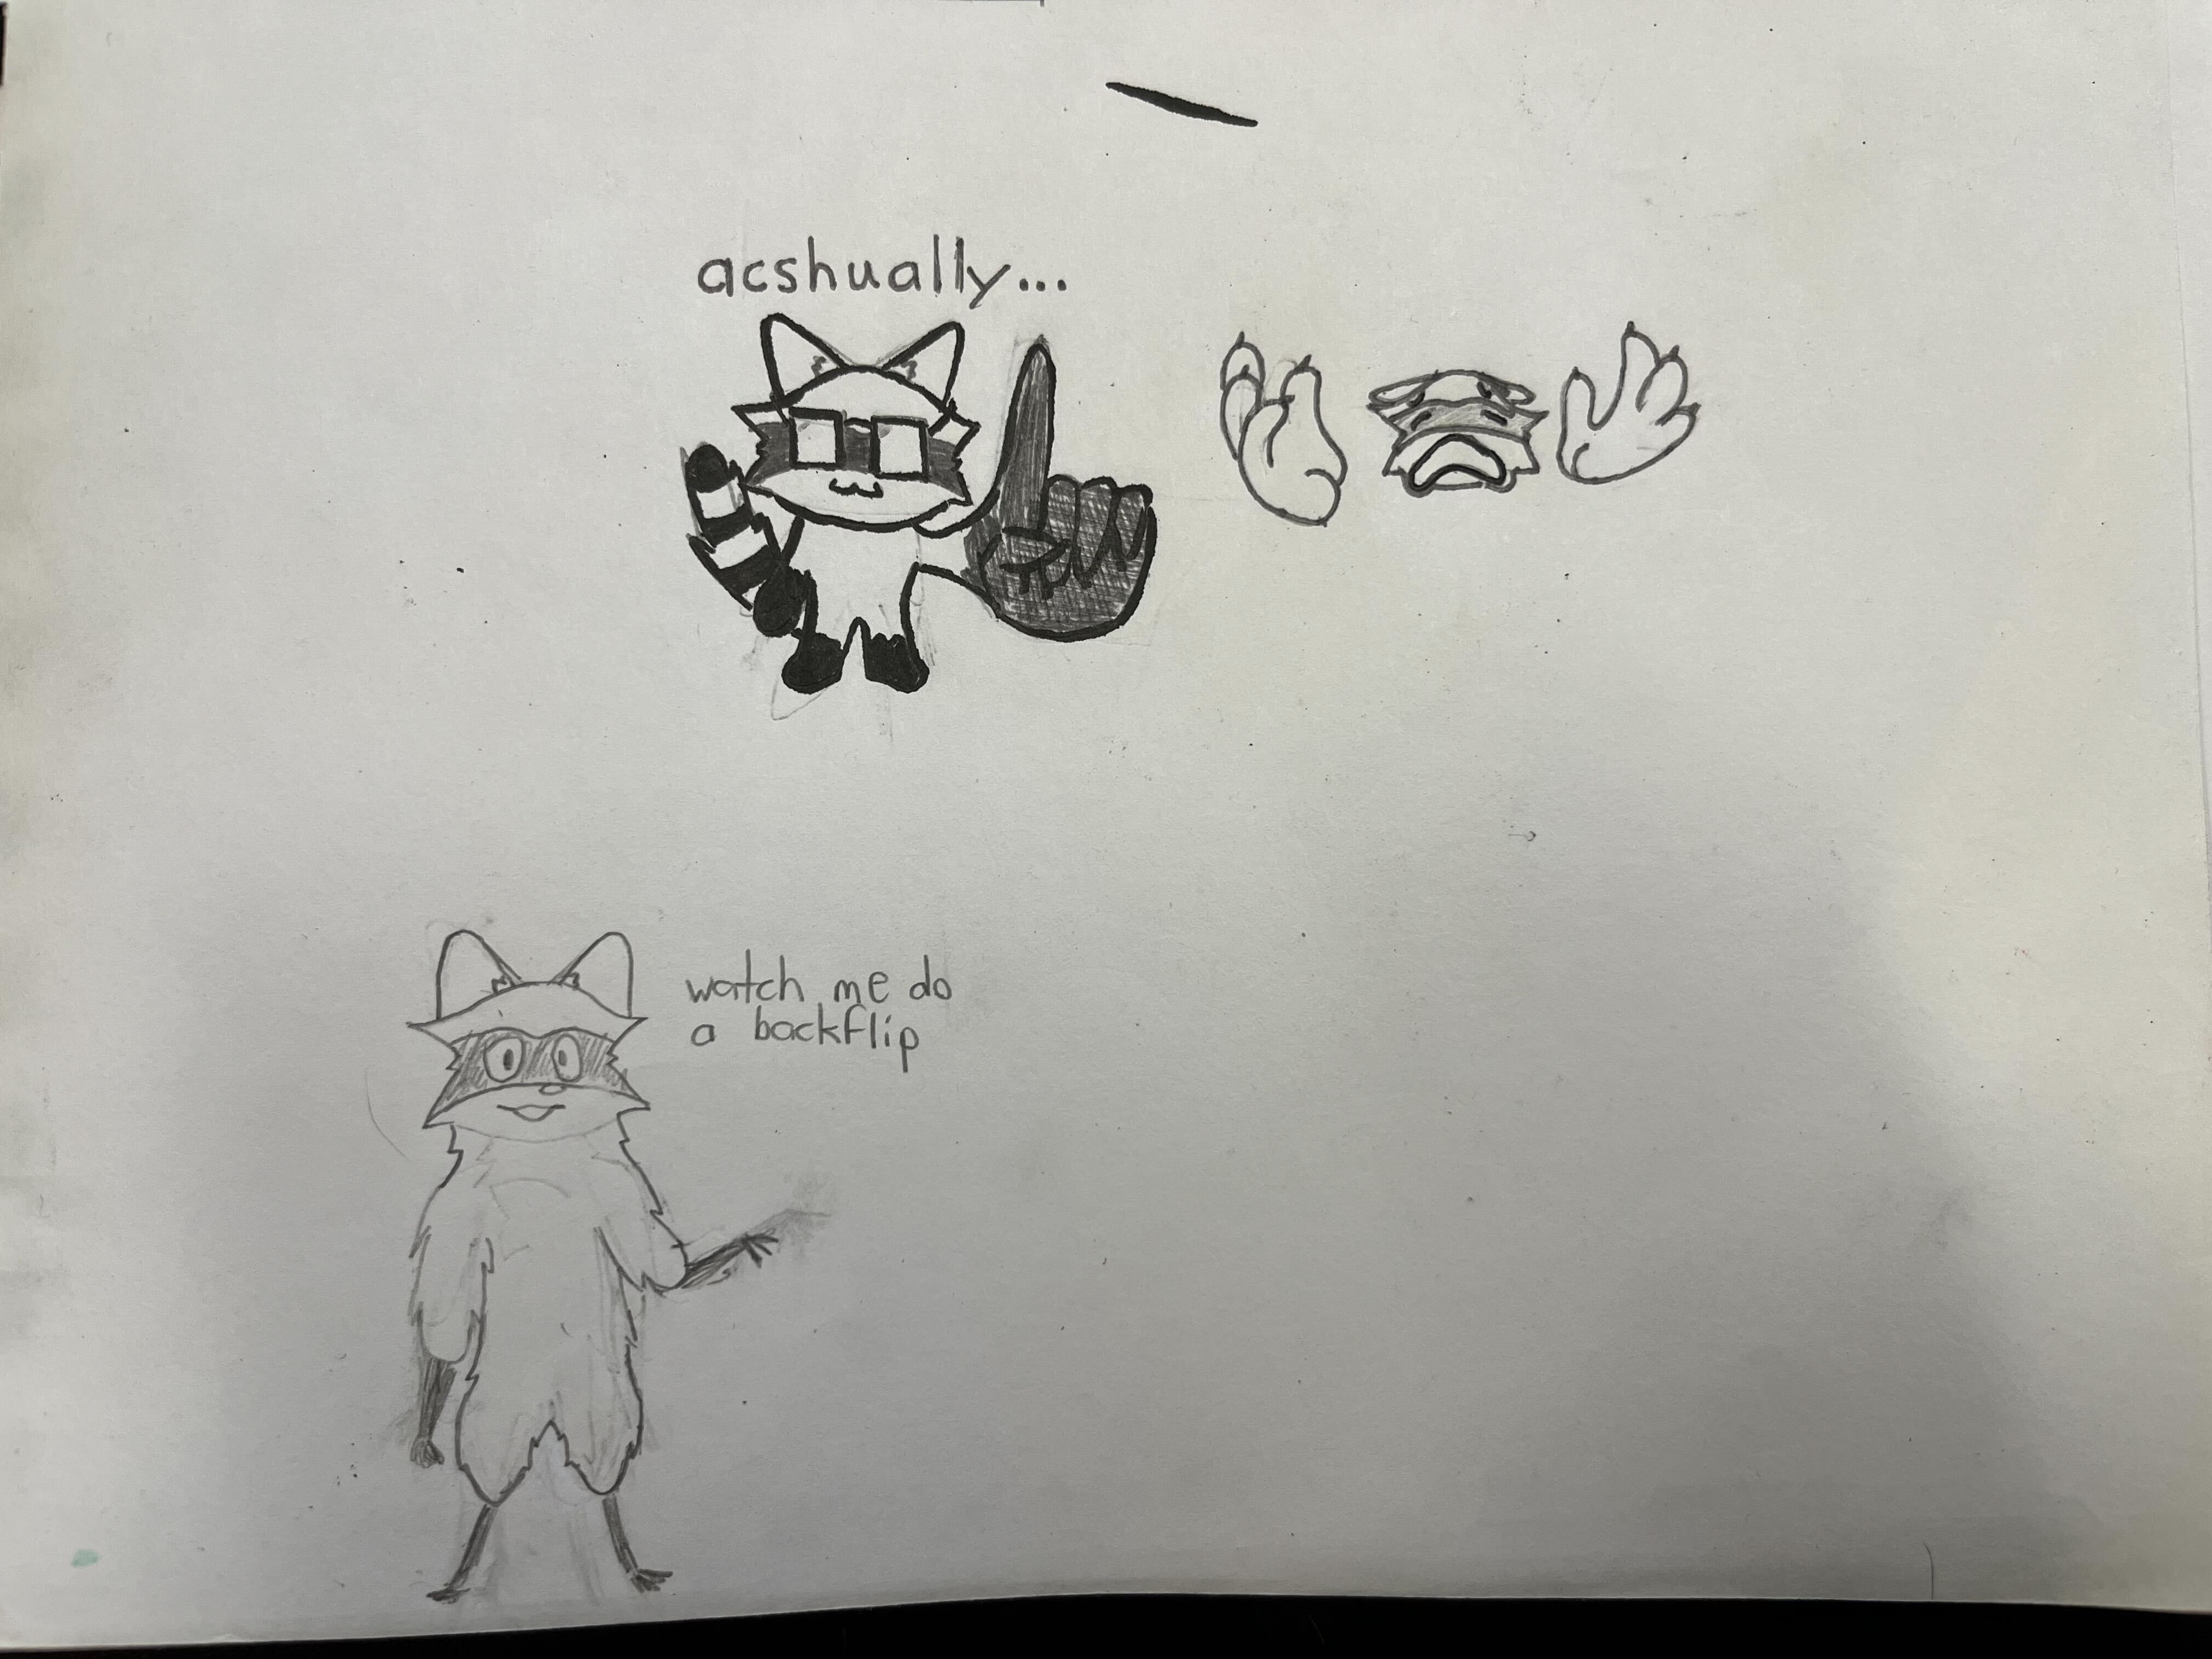 acshually...
watch me do
a backflip